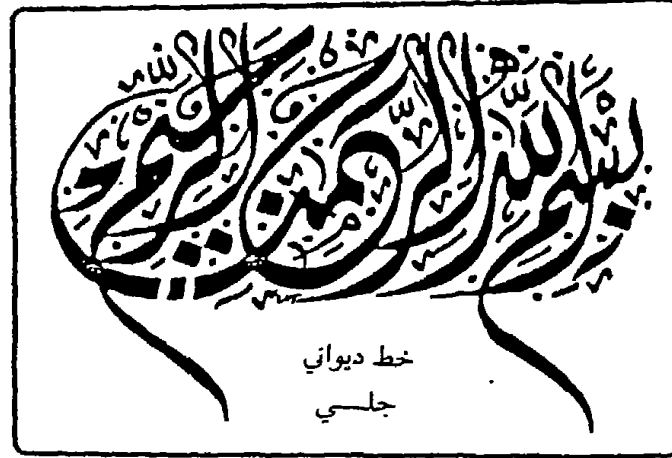 بسم الله الرحمن الرحيم
خط ديواني
جلي